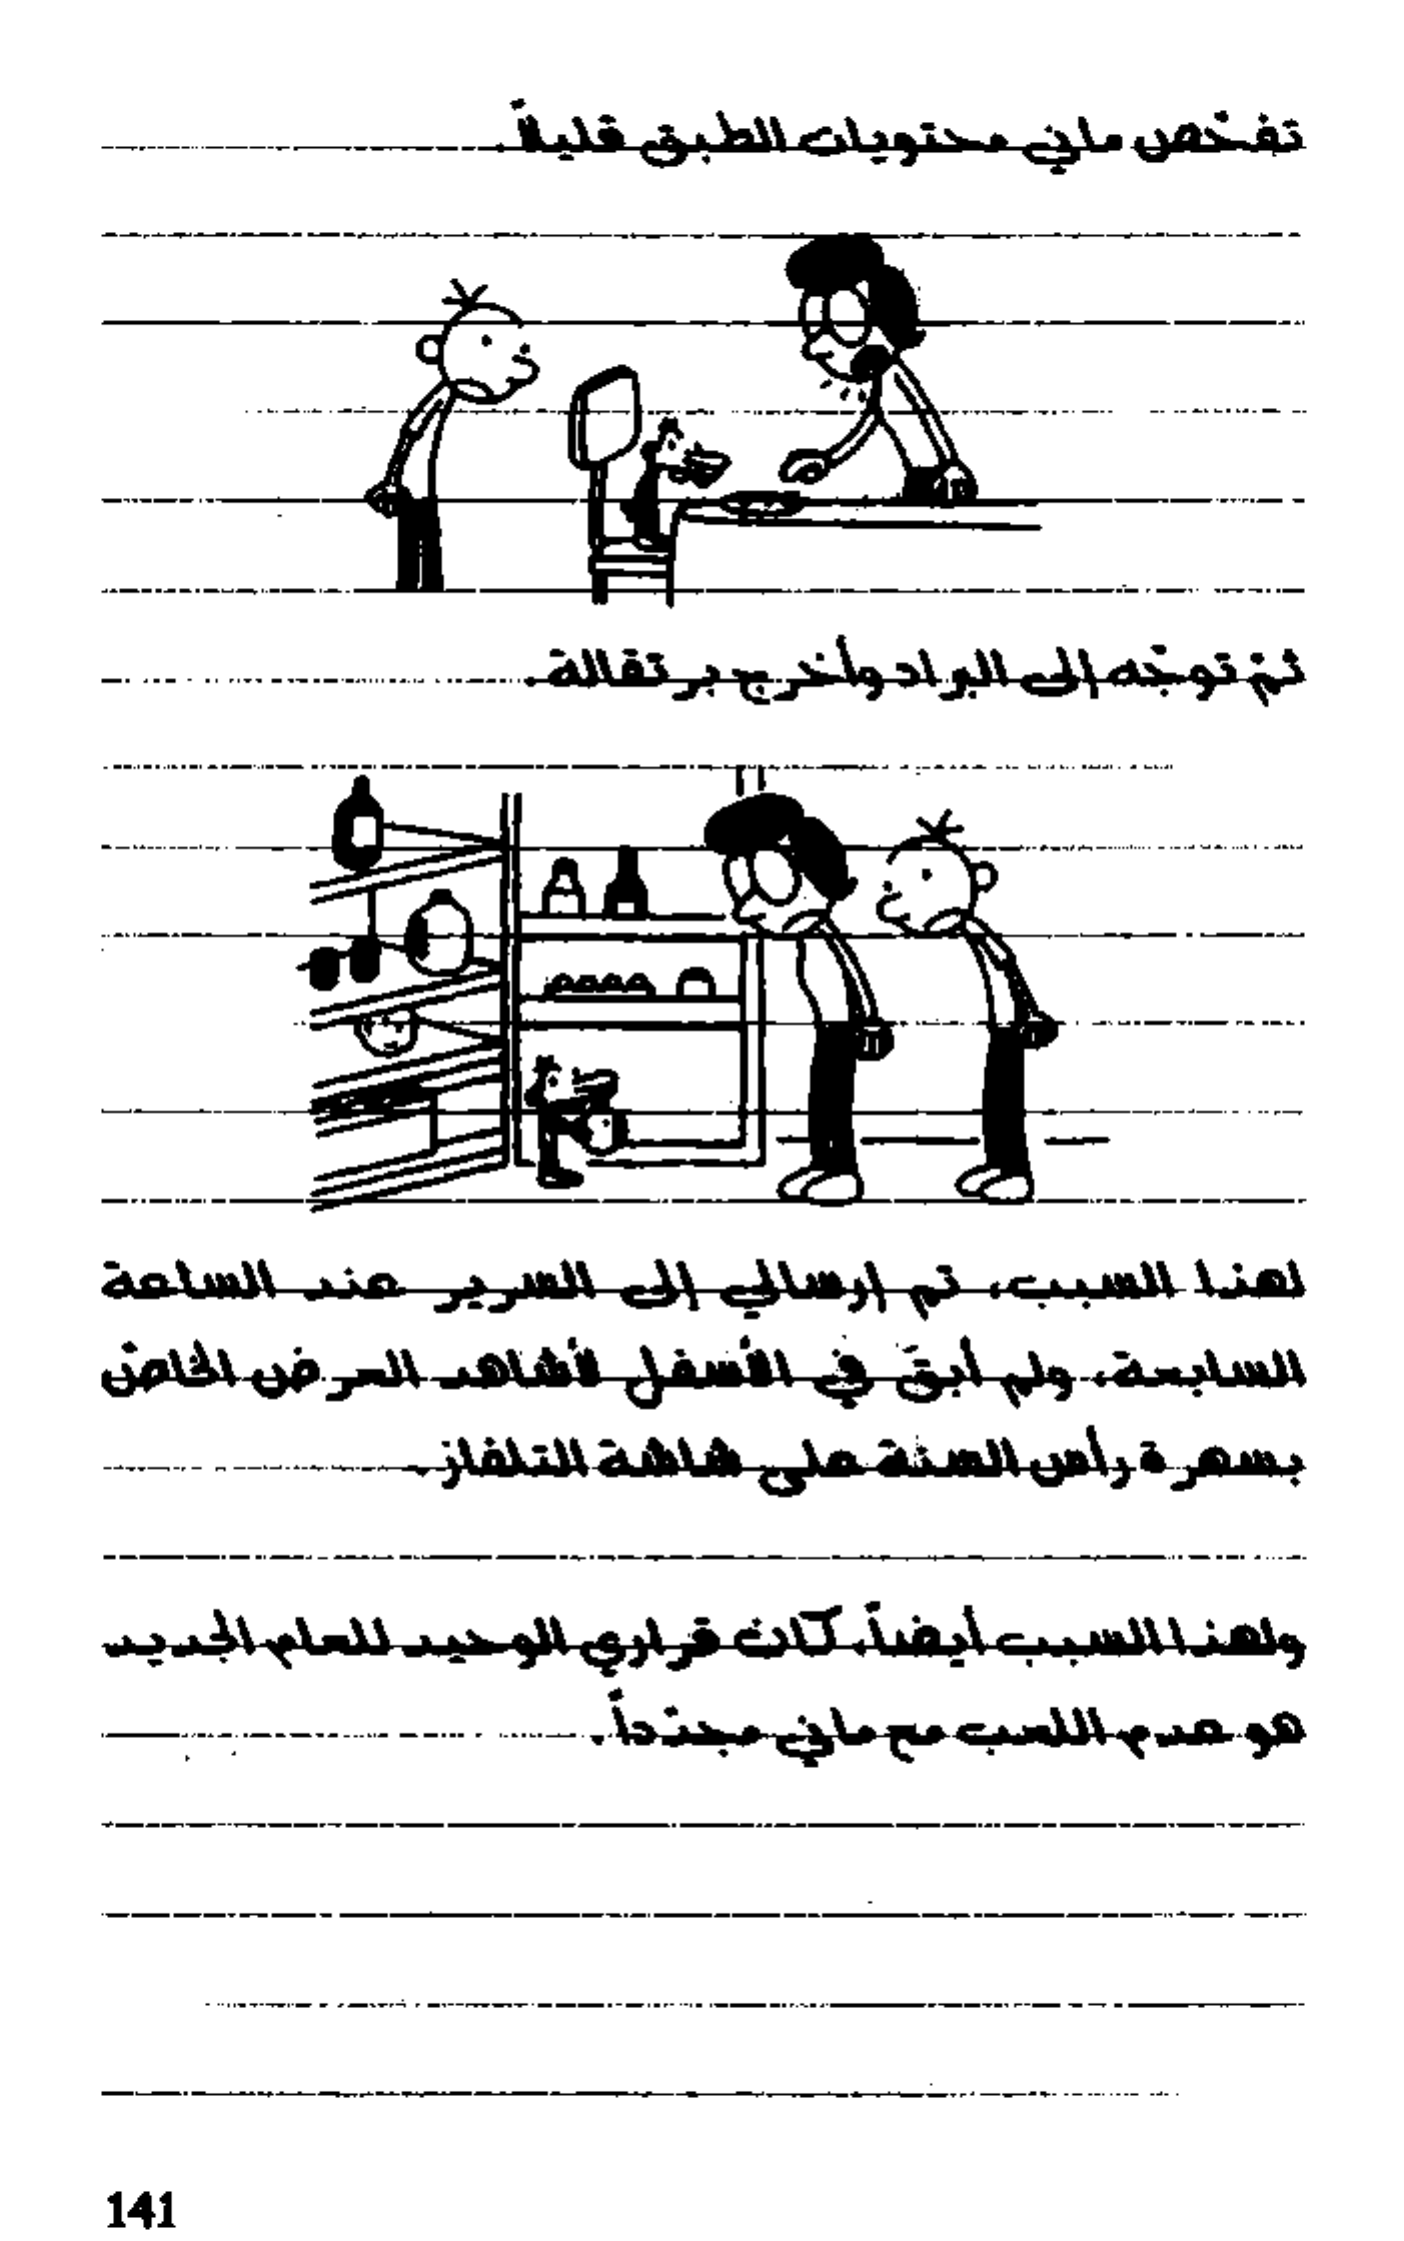 تفحّص ماني محتويات الطبق قليلاً.
ثمّ توجّه إلى البراد وأخرج برتقالة.
لهذا السبب، تم إرسالي إلى السرير عند الساعة
السابعة، ولم أبقَ في الأسفل لأشاهد العرض الخاصّ
بسهرة رأس السنة على شاشة التلفاز.
ولهذا السبب أيضاً، كان قراري الوحيد للعام الجديد
هو عدم اللعب مع ماني مجدّداً.
141